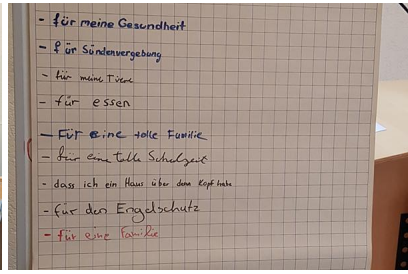 - für meine Gesundheit
- für Sündenvergebung
- für meine Tiere
- für essen
- Für eine tolle Familie
- für eine tolle Schulzeit
- dass ich ein Haus über dem Kopf habe
- für den Engelschutz
- für eine Familie